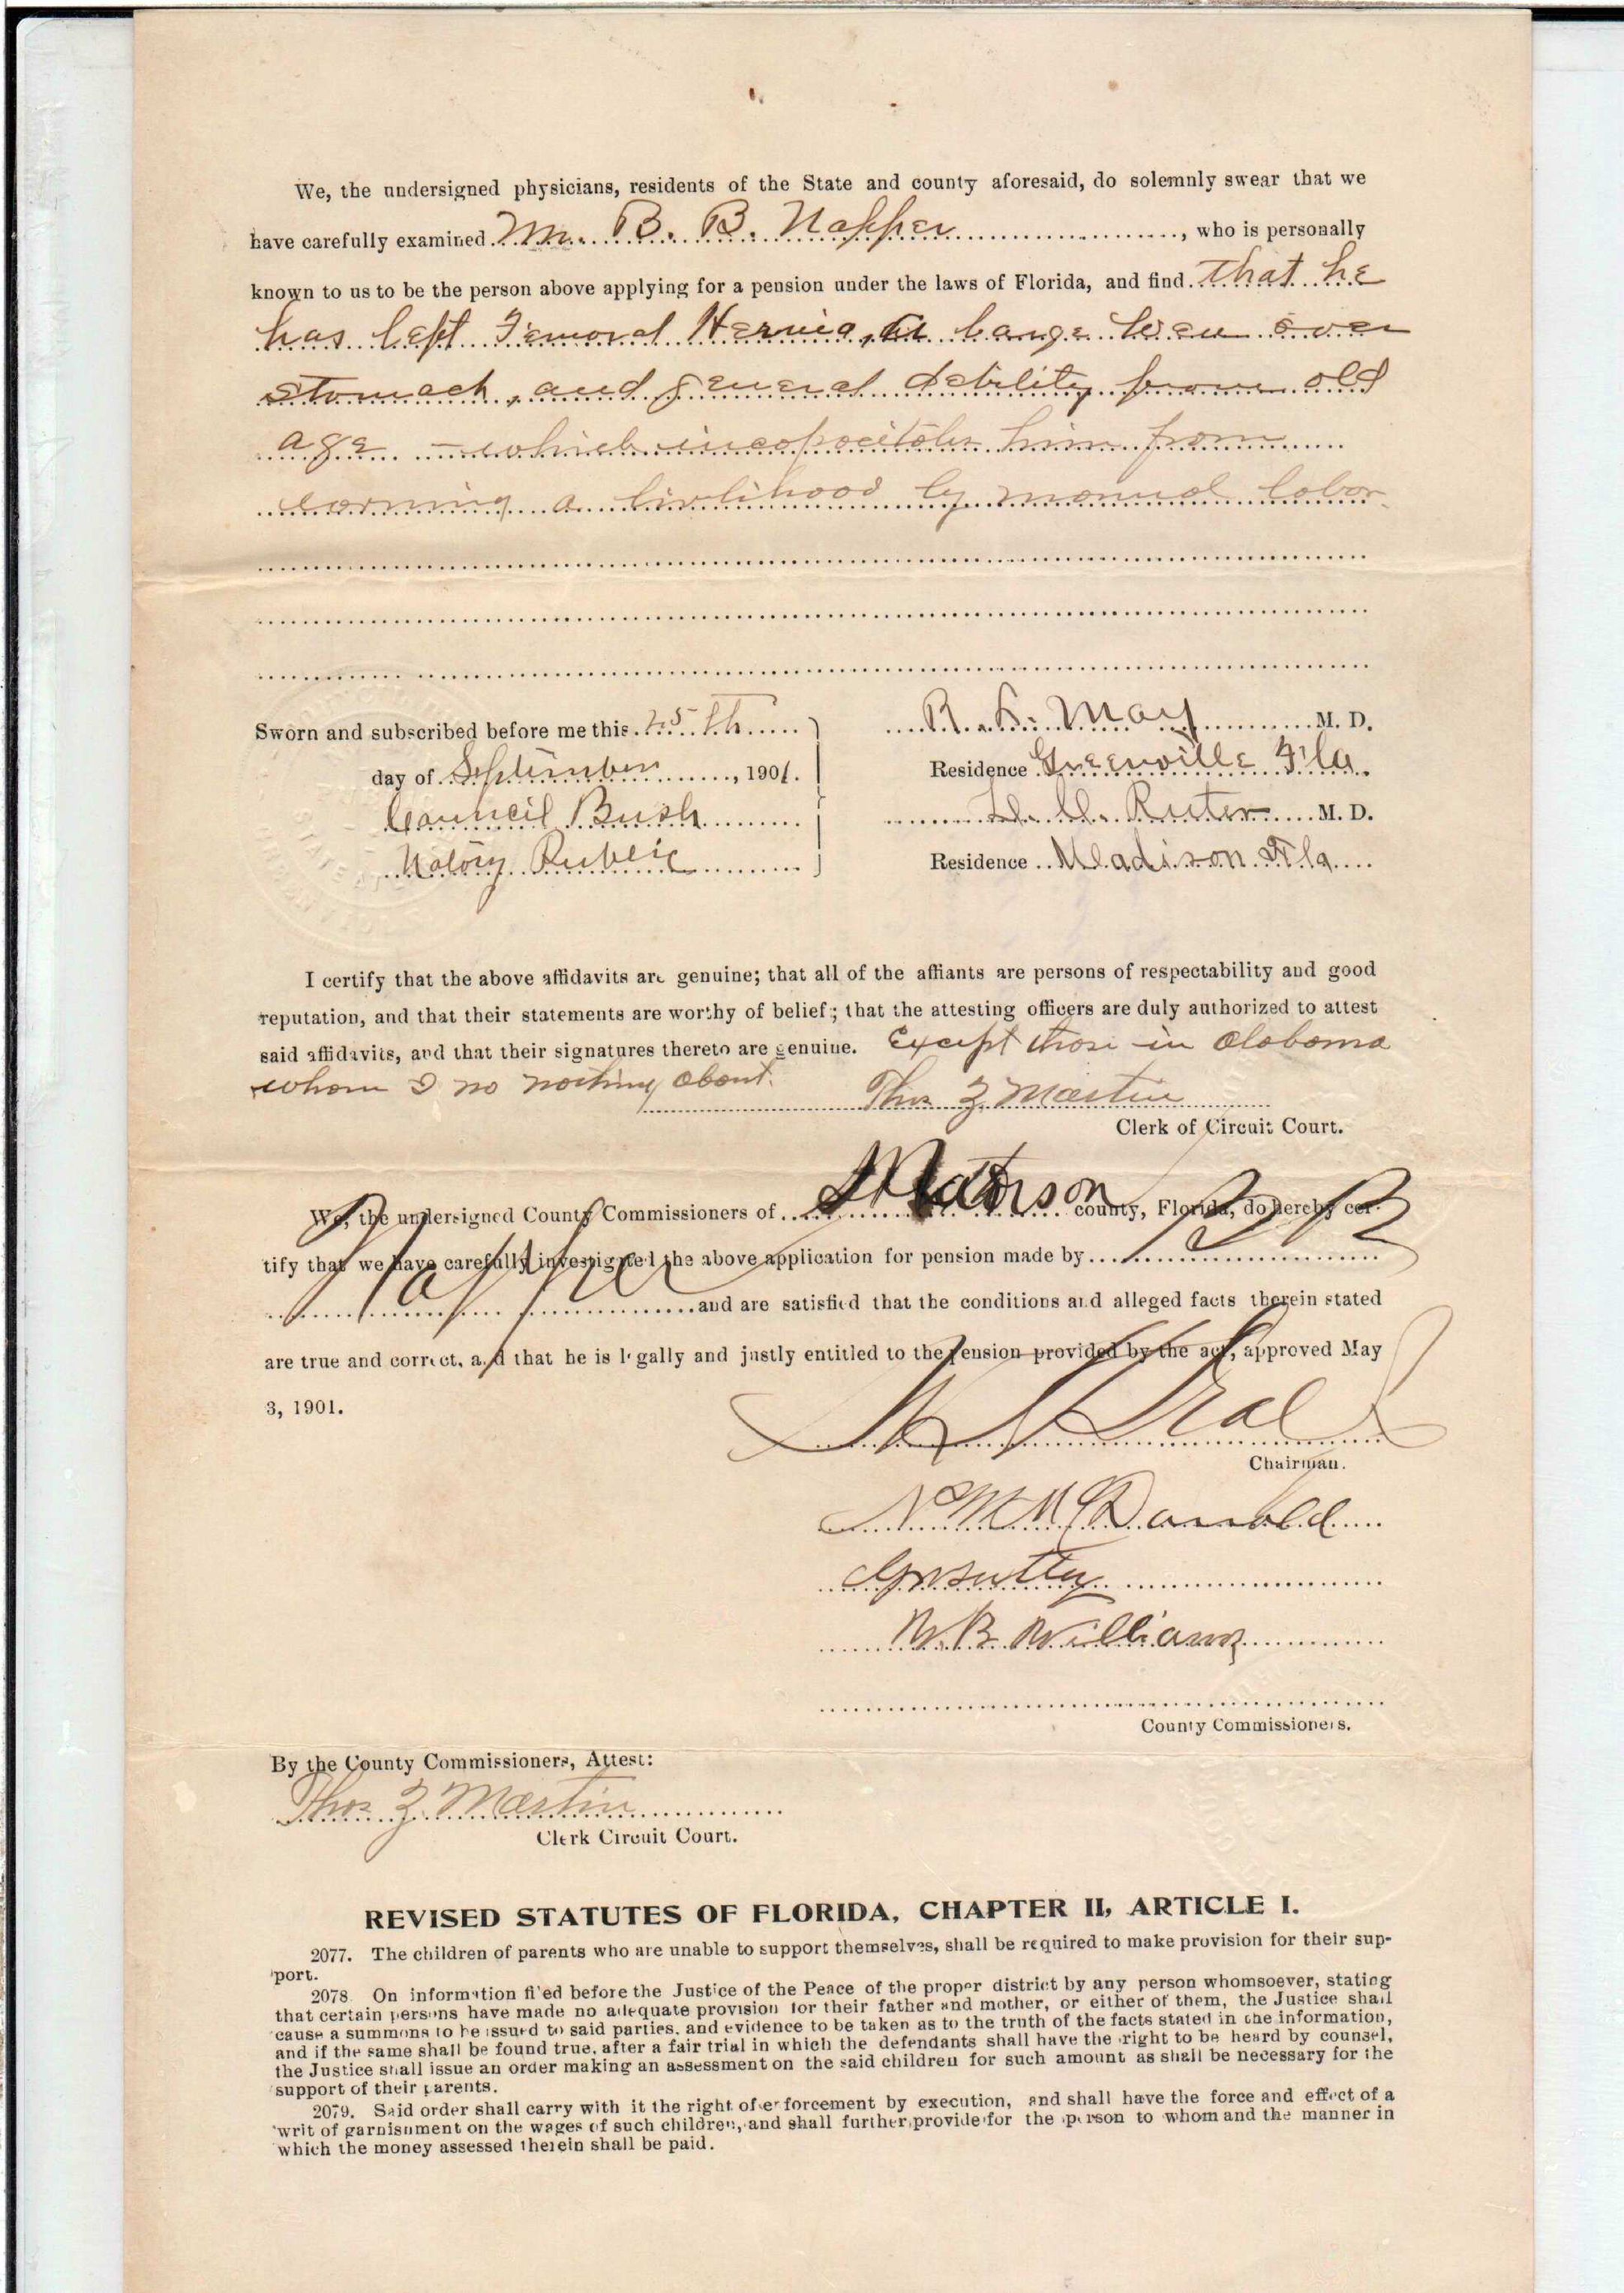 We, the undersigned physicians, residents of the State and county aforesaid, do solemnly swear that we
have carefully examined M. B. B. Napper, who is personally
known to us to be the person above applying for a pension under the laws of Florida, and find that he
has left Femoral Hernia, a large Wen over
stomach, and general debility from old
age – which incapacitates him from
earning a livlihood by manual labor.
Sworn and subscribed before me this 25th
day of September, 1901.
Council Bush
Notary Public
R. May M. D.
Residence Greenville Fla.
Ruter M. D.
Residence Madison Fla
I certify that the above affidavits are genuine; that all of the affiants are persons of respectability and good
reputation, and that their statements are worthy of belief; that the attesting officers are duly authorized to attest
said affidavits, and that their signatures thereto are genuine. Except those in Alabama
whom I no nothing about.
Thos Z. Martin
Clerk of Circuit Court.
We, the undersigned County Commissioners of Madison county, Florida, do hereby cer-
tify that we have carefully investigated the above application for pension made by B B
Napper and are satisfied that the conditions and alleged facts therein stated
are true and correct, and that he is legally and justly entitled to the pension provided by the act, approved May
3, 1901.
Chairman.
N M McDanold
W. B. Williams
County Commissioners.
By the County Commissioners, Attest:
Thos Z. Martin
Clerk Circuit Court.
REVISED STATUTES OF FLORIDA, CHAPTER II, ARTICLE I.
2077. The children of parents who are unable to support themselves, shall be required to make provision for their sup-
port.
2078 On information filed before the Justice of the Peace of the proper district by any person whomsoever, stating
that certain persons have made no adequate provision for their father and mother, or either of them, the Justice shall
cause a summons to be issued to said parties, and evidence to be taken as to the truth of the facts stated in the information,
and if the same shall be found true, after a fair trial in which the defendants shall have the right to be heard by counsel,
the Justice shall issue an order making an assessment on the said children for such amount as shall be necessary for the
support of their parents.
2079. Said order shall carry with it the right of enforcement by execution, and shall have the force and effect of a
writ of garnishment on the wages of such children, and shall further provide for the person to whom and the manner in
which the money assessed therein shall be paid.